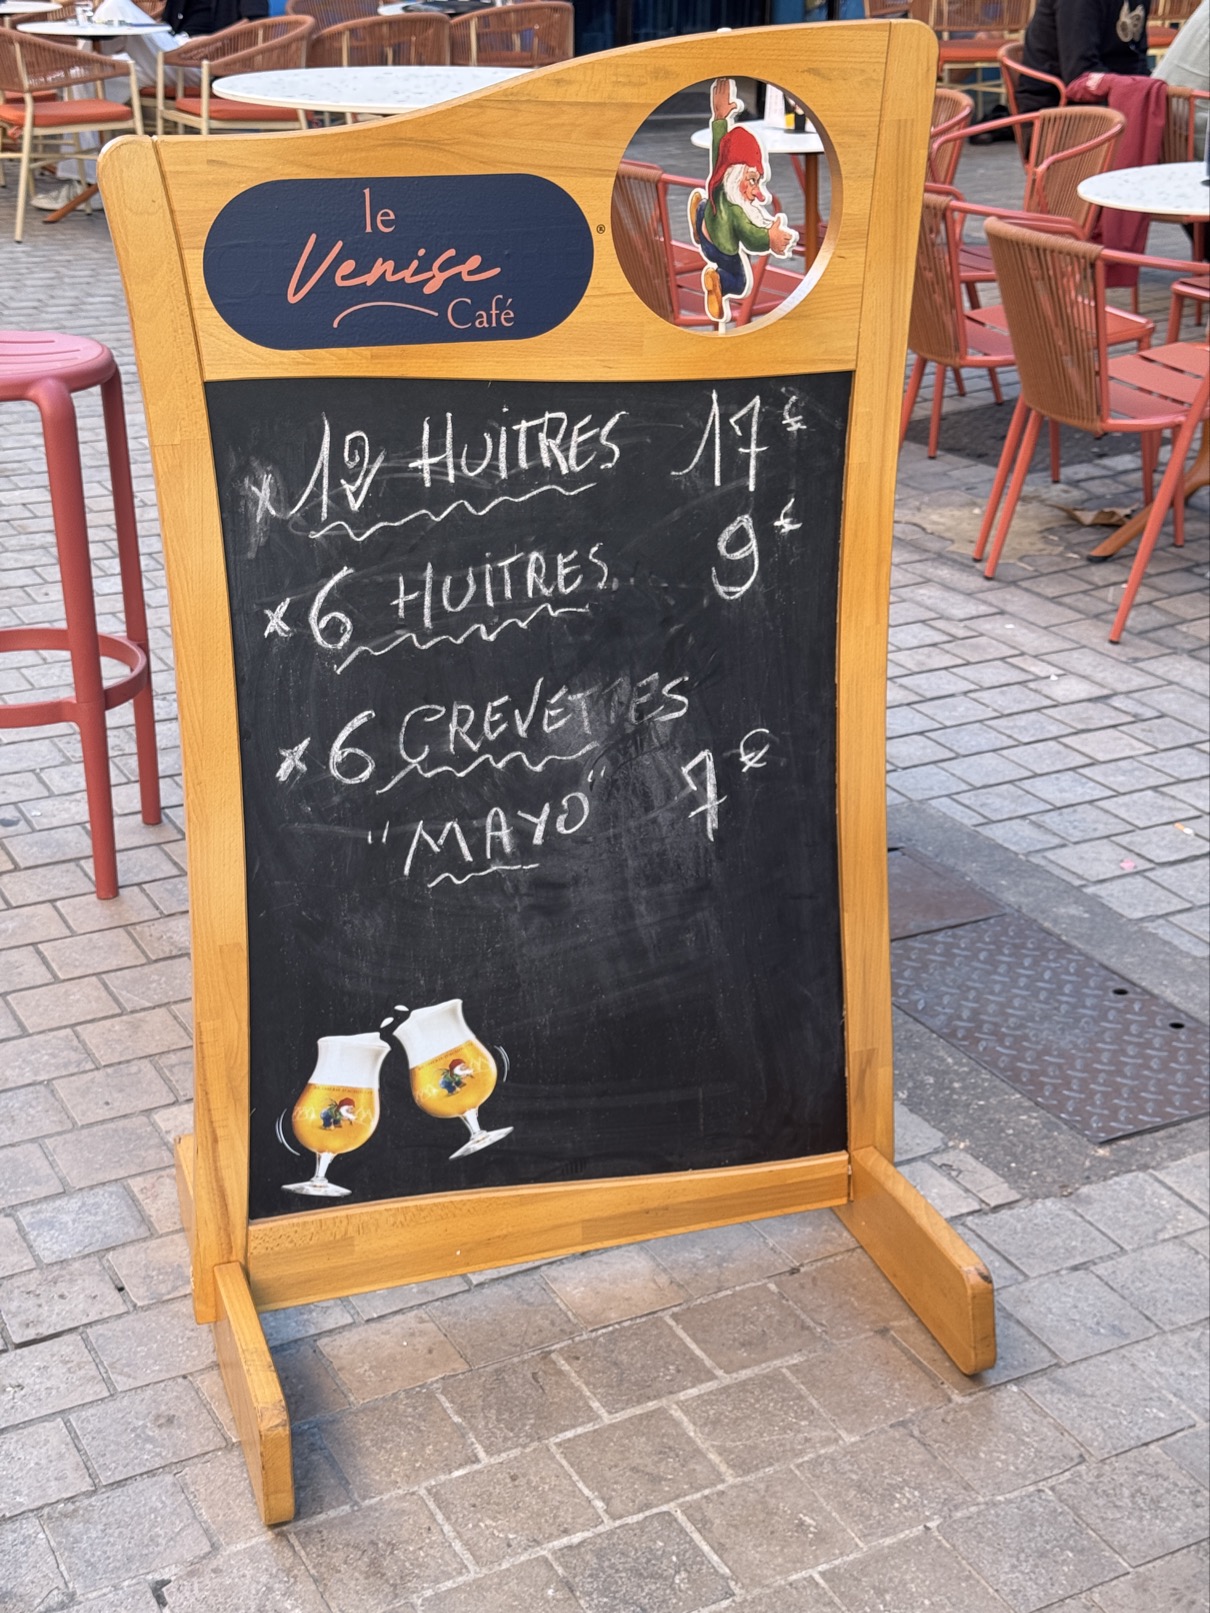 le
Venise
Café
®
x 12 HUITRES 17€
x 6 HUITRES 9€
x 6 CREVETTES
"MAYO" 7€